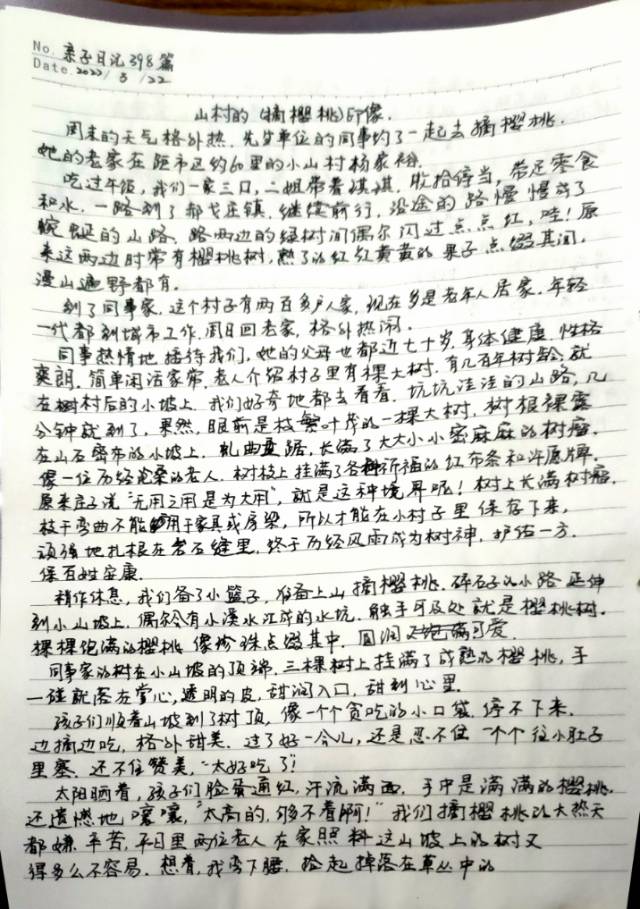 No. 亲子日记398篇
Date. 2022/5/22
山村的(摘樱桃)印像.
周末的天气格外热. 先生单位的同事约了一起去摘樱桃.
她的老家在距市区约60里的小山村杨家
吃过午饭, 我们一家三口, 二姐带着琪琪. 收拾停当, 带足零食
和水. 一路到了郝戈庄镇. 继续前行, 沿途的路慢慢成了
蜿蜒的山路. 路两边的绿树间偶尔闪过点点红, 哇! 原
来这两边时常有樱桃树, 熟了的红红黄黄的果子点缀其间.
漫山遍野都有.
到了同事家. 这个村子有两百多户人家, 现在多是老年人居家. 年轻
一代都到城市工作. 周日回老家, 格外热闹.
同事热情地接待我们, 她的父母也都近七十岁. 身体健康. 性格
爽朗. 简单闲话家常. 老人介绍村子里有棵大树. 有几百年树龄, 就
在村后的小坡上. 我们好奇地都去看看. 坑坑洼洼的山路, 几
分钟就到了, 果然, 眼前是枝繁叶茂的一棵大树, 树根裸露
在山石密布的小坡上. 虬曲盘踞, 长满了大大小小密麻麻的树瘤.
像一位历经沧桑的老人. 树枝上挂满了各种祈福的红布条和许愿牌.
原来庄子说“无用之用是为大用”, 就是这种境界呢! 树上长满树瘤.
枝干弯曲不能够用于家具或房梁, 所以才能在小村子里保存下来,
顽强地扎根在岩石缝里. 终于历经风雨成为树神, 护佑一方.
保百姓安康.
稍作休息, 我们备了小篮子, 准备上山摘樱桃. 碎石子的小路延伸
到小山坡上. 偶尔会有小溪水汇成的水坑. 触手可及处就是樱桃树.
棵棵饱满的樱桃像珍珠点缀其中. 圆润可爱.
同事家的树在小山坡的顶端. 三棵树上挂满了成熟的樱桃, 手
一碰就落在掌心, 透明的皮, 甜润入口, 甜到心里.
孩子们顺着山坡到了树顶, 像一个个贪吃的小口袋. 停不下来.
边摘边吃, 格外甜美. 过了好一会儿, 还是忍不住一个个往小肚子
里塞. 还不住赞美, “太好吃了!
太阳晒着, 孩子们脸蛋通红, 汗流满面. 手中是满满的樱桃.
还遗憾地嚷嚷, “太高的, 够不着啊!” 我们摘樱桃的大热天
都嫌辛苦, 平日里两位老人在家照料这山坡上的树又
得多么不容易. 想着, 我弯下腰. 捡起掉落在草丛中的